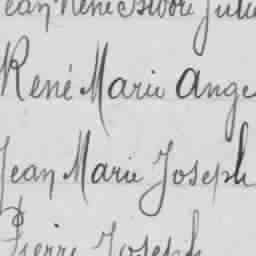 Jean René Isidore Jule
René Marie Ange
Jean Marie Joseph
Pierre Joseph